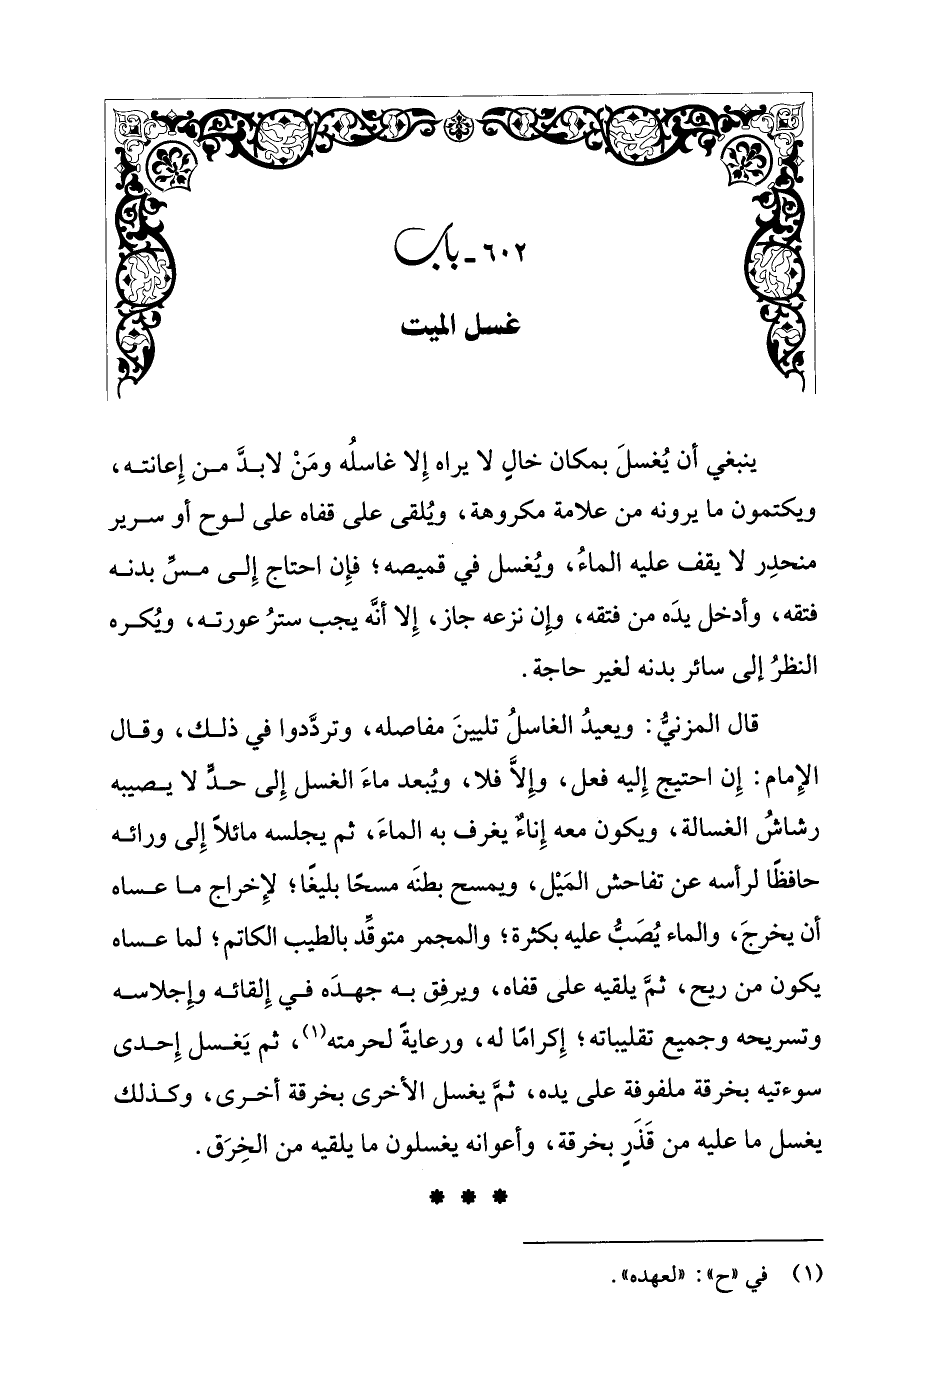 ٦٠٢ - باب
غسل الميت
ينبغي أن يُغسلَ بمكان خالٍ لا يراه إلا غاسلُه ومَنْ لابدَّ من إعانته،
ويكتمون ما يرونه من علامة مكروهة، ويُلقى على قفاه على لوح أو سرير
منحدِر لا يقف عليه الماءُ، ويُغسل في قميصه؛ فإن احتاج إلى مسِّ بدنه
فتقه، وأدخل يدَه من فتقه، وإن نزعه جاز، إلا أنَّه يجب سترُ عورته، ويُكره
النظرُ إلى سائر بدنه لغير حاجة.
قال المزنيُّ: ويعيدُ الغاسلُ تليينَ مفاصله، وتردَّدوا في ذلك، وقال
الإمام: إن احتيج إليه فعل، وإلاَّ فلا، ويُبعد ماءَ الغسل إلى حدٍّ لا يصيبه
رشاشُ الغسالة، ويكون معه إناءٌ يغرف به الماءَ، ثم يجلسه مائلاً إلى ورائه
حافظًا لرأسه عن تفاحش المَيْل، ويمسح بطنَه مسحًا بليغًا؛ لإخراج ما عساه
أن يخرجَ، والماء يُصَبُّ عليه بكثرة؛ والمجمر متوقِّد بالطيب الكاتم؛ لما عساه
يكون من ريح، ثمَّ يلقيه على قفاه، ويرفِق به جهدَه في إلقائه وإجلاسه
وتسريحه وجميع تقليباته؛ إكرامًا له، ورعايةً لحرمته(١)، ثم يَغسل إحدى
سوءتيه بخرقة ملفوفة على يده، ثمَّ يغسل الأخرى بخرقة أخرى، وكذلك
يغسل ما عليه من قَذَرٍ بخرقة، وأعوانه يغسلون ما يلقيه من الخِرَق.
* * *
(١) في «ح»: «لعهده».